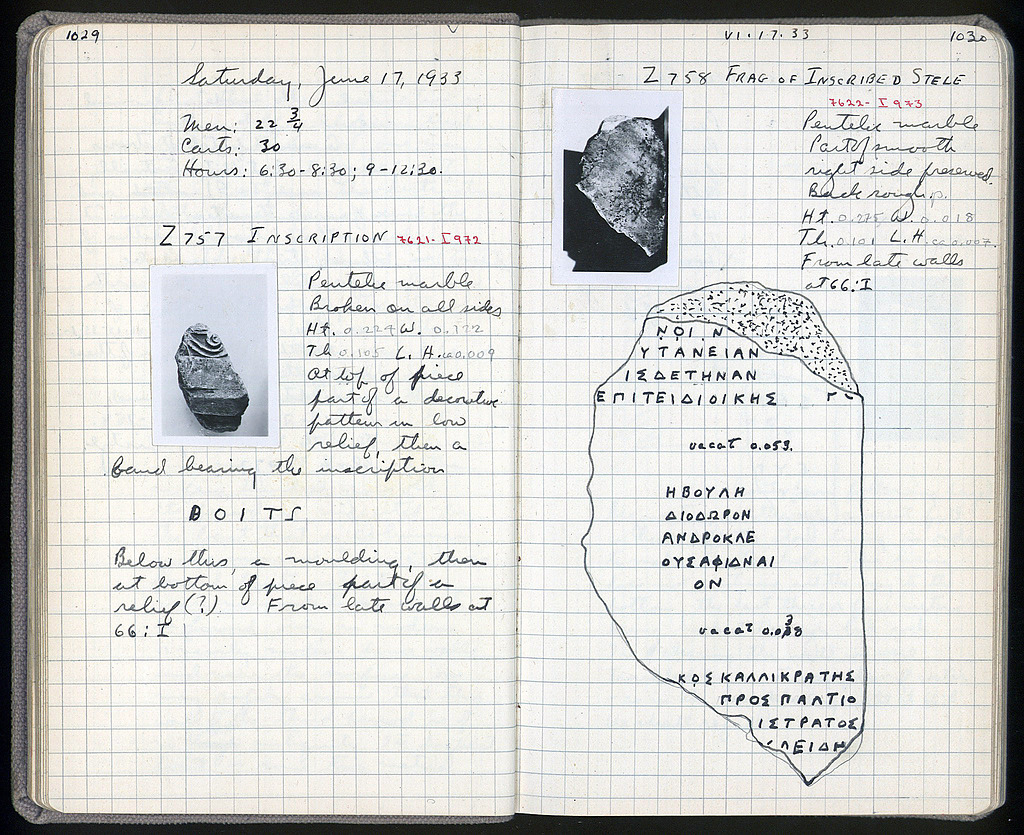 1029
Saturday, June 17, 1933
Men: 22 3/4
Carts: 30
Hours: 6:30-8:30; 9-12:30.
Z 757 INSCRIPTION 7621- I 972
Pentelic marble
Broken on all sides
Ht. 0.224 W. 0.122
Th 0.105 L. H. ca 0.009
At top of piece
part of a decorative
pattern in low
relief, then a
band bearing the inscription
Below this, a moulding, then
at bottom of piece part of a
relief (?) From late walls at
66:I
VI.17.33
1030
Z 758 FRAG OF INSCRIBED STELE
7622- I 973
Pentelic marble
Part of smooth
right side preserved.
Back rough.
Ht. 0.275 W. 0.018
Th. 0.101 L.H. ca 0.007.
From late walls
at 66:I
ΝΟΙΝ
ΥΤΑΝΕΙΑΝ
ΙΣΔΕΤΗΝΑΝ
ΕΠΙΤΕΙΔΙΟΙΚΗΣ
vacat 0.053.
ΗΒΟΥΛΗ
ΔΙΟΔΩΡΟΝ
ΑΝΔΡΟΚΛΕ
ΟΥΣΑΦΙΔΝΑΙ
ΟΝ
vacat
ΚΟΣΚΑΛΛΙΚΡΑΤΗΣ
ΠΡΟΣΠΑΛΤΙΟ
ΙΣΤΡΑΤΟΣ
ΛΕΙΔΗ